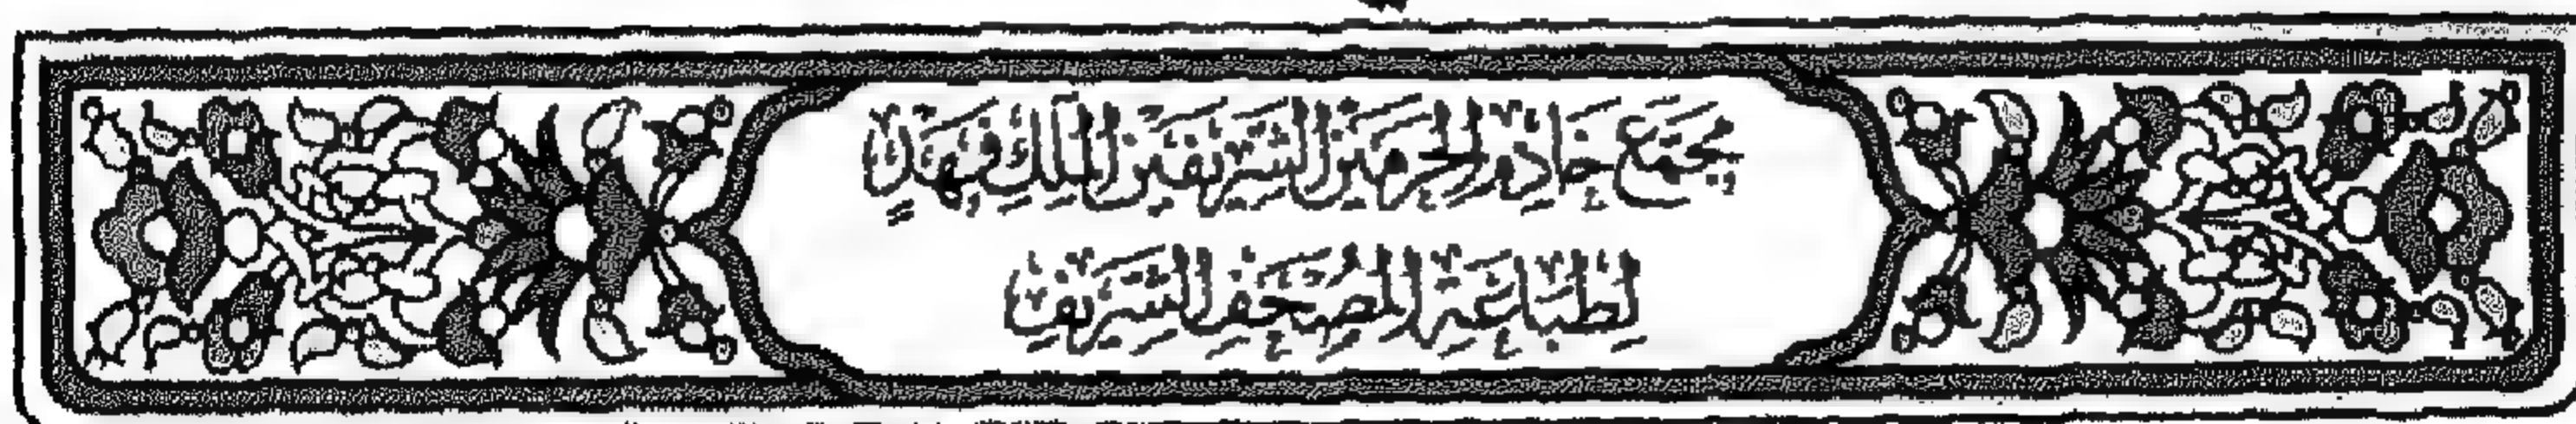 مُجَمَّعُ خَادِمِ الْحَرَمَيْنِ الشَّرِيفَيْنِ الْمَلِكِ فَهْدٍ
لِطِبَاعَةِ الْمُصْحَفِ الشَّرِيفِ